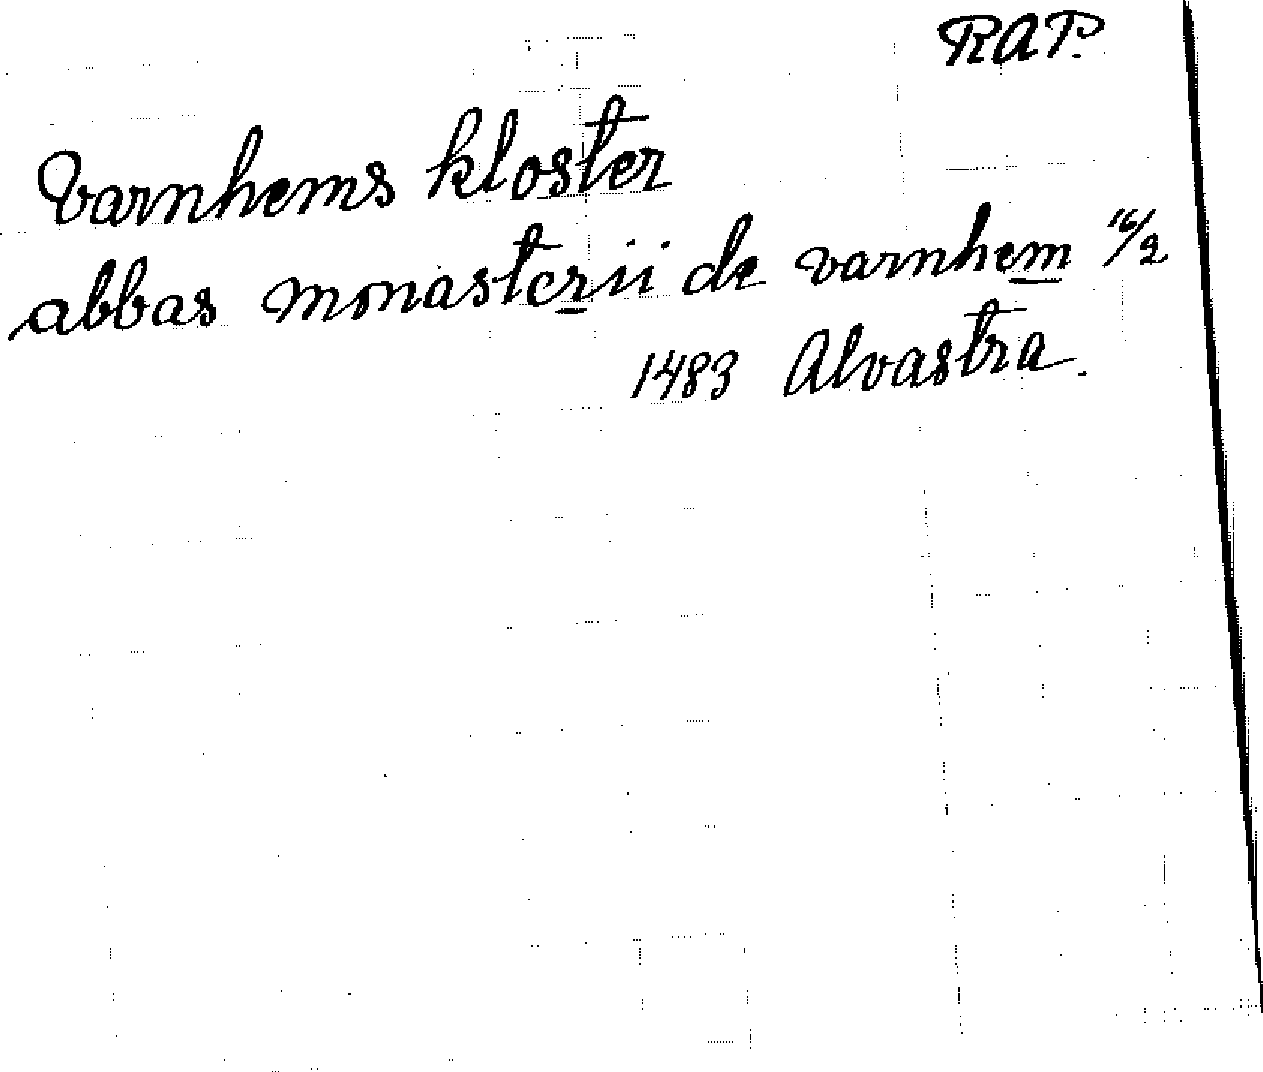 RAP.
Varnhems kloster
abbas monasterii de varnhem 16/2
1483 Alvastra.